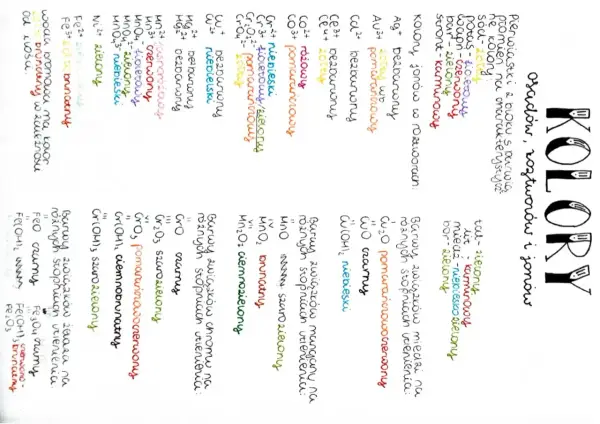 KOLORY
osadów, roztworów i jonów
Pierwiastki z bloku s barwią
płomień na charakterystycz
ne kolory:
sód - żółty
potas - fioletowy
wapń - czerwony
bar - zielony
stront - karminowy
tal - zielony
lit - karminowy
miedź - niebieskozielony
bor - zielony
Kolory jonów w roztworach:
Ag⁺ bezbarwny
Au³⁺ żółty lub
pomarańczowy
Cd²⁺ bezbarwny
Ce³⁺ bezbarwny
Ce⁴⁺ żółty
Co²⁺ różowy
Co³⁺ pomarańczowy
Cr²⁺ niebieski
Cr³⁺ fioletowy/zielony
Cr₂O₇²⁻ pomarańczowy
CrO₄²⁻ żółty
Cu⁺ bezbarwny
Cu²⁺ niebieski
Hg²⁺ bezbarwny
Hg₂²⁺ bezbarwny
Mn²⁺
Mn³⁺ czerwony
MnO₄⁻ fioletowy
MnO₄²⁻ zielony
MnO₄³⁻ niebieski
Ni²⁺ zielony
Fe²⁺
Fe³⁺ brunatny
woda bromowa ma kolor
brunatny w zależności
od
Barwy związków miedzi na
różnych stopniach utlenienia:
Cu₂O pomarańczowoczerwony
CuO czarny
Cu(OH)₂ niebieski
Barwy związków manganu na
różnych stopniach utlenienia:
MnO szarozielony
MnO₂ brunatny
Mn₂O₇ ciemnozielony
Barwy związków chromu na
różnych stopniach utlenienia:
CrO czarny
Cr₂O₃ szarozielony
CrO₃ pomarańczowoczerwony
Cr(OH)₂ ciemnobrunatny
Cr(OH)₃ szarozielony
Barwy związków żelaza na
różnych stopniach utlenienia:
FeO czarny Fe₃O₄ czarny
Fe(OH)₂ Fe(OH)₃ czerwono-
Fe₂O₃ brunatny